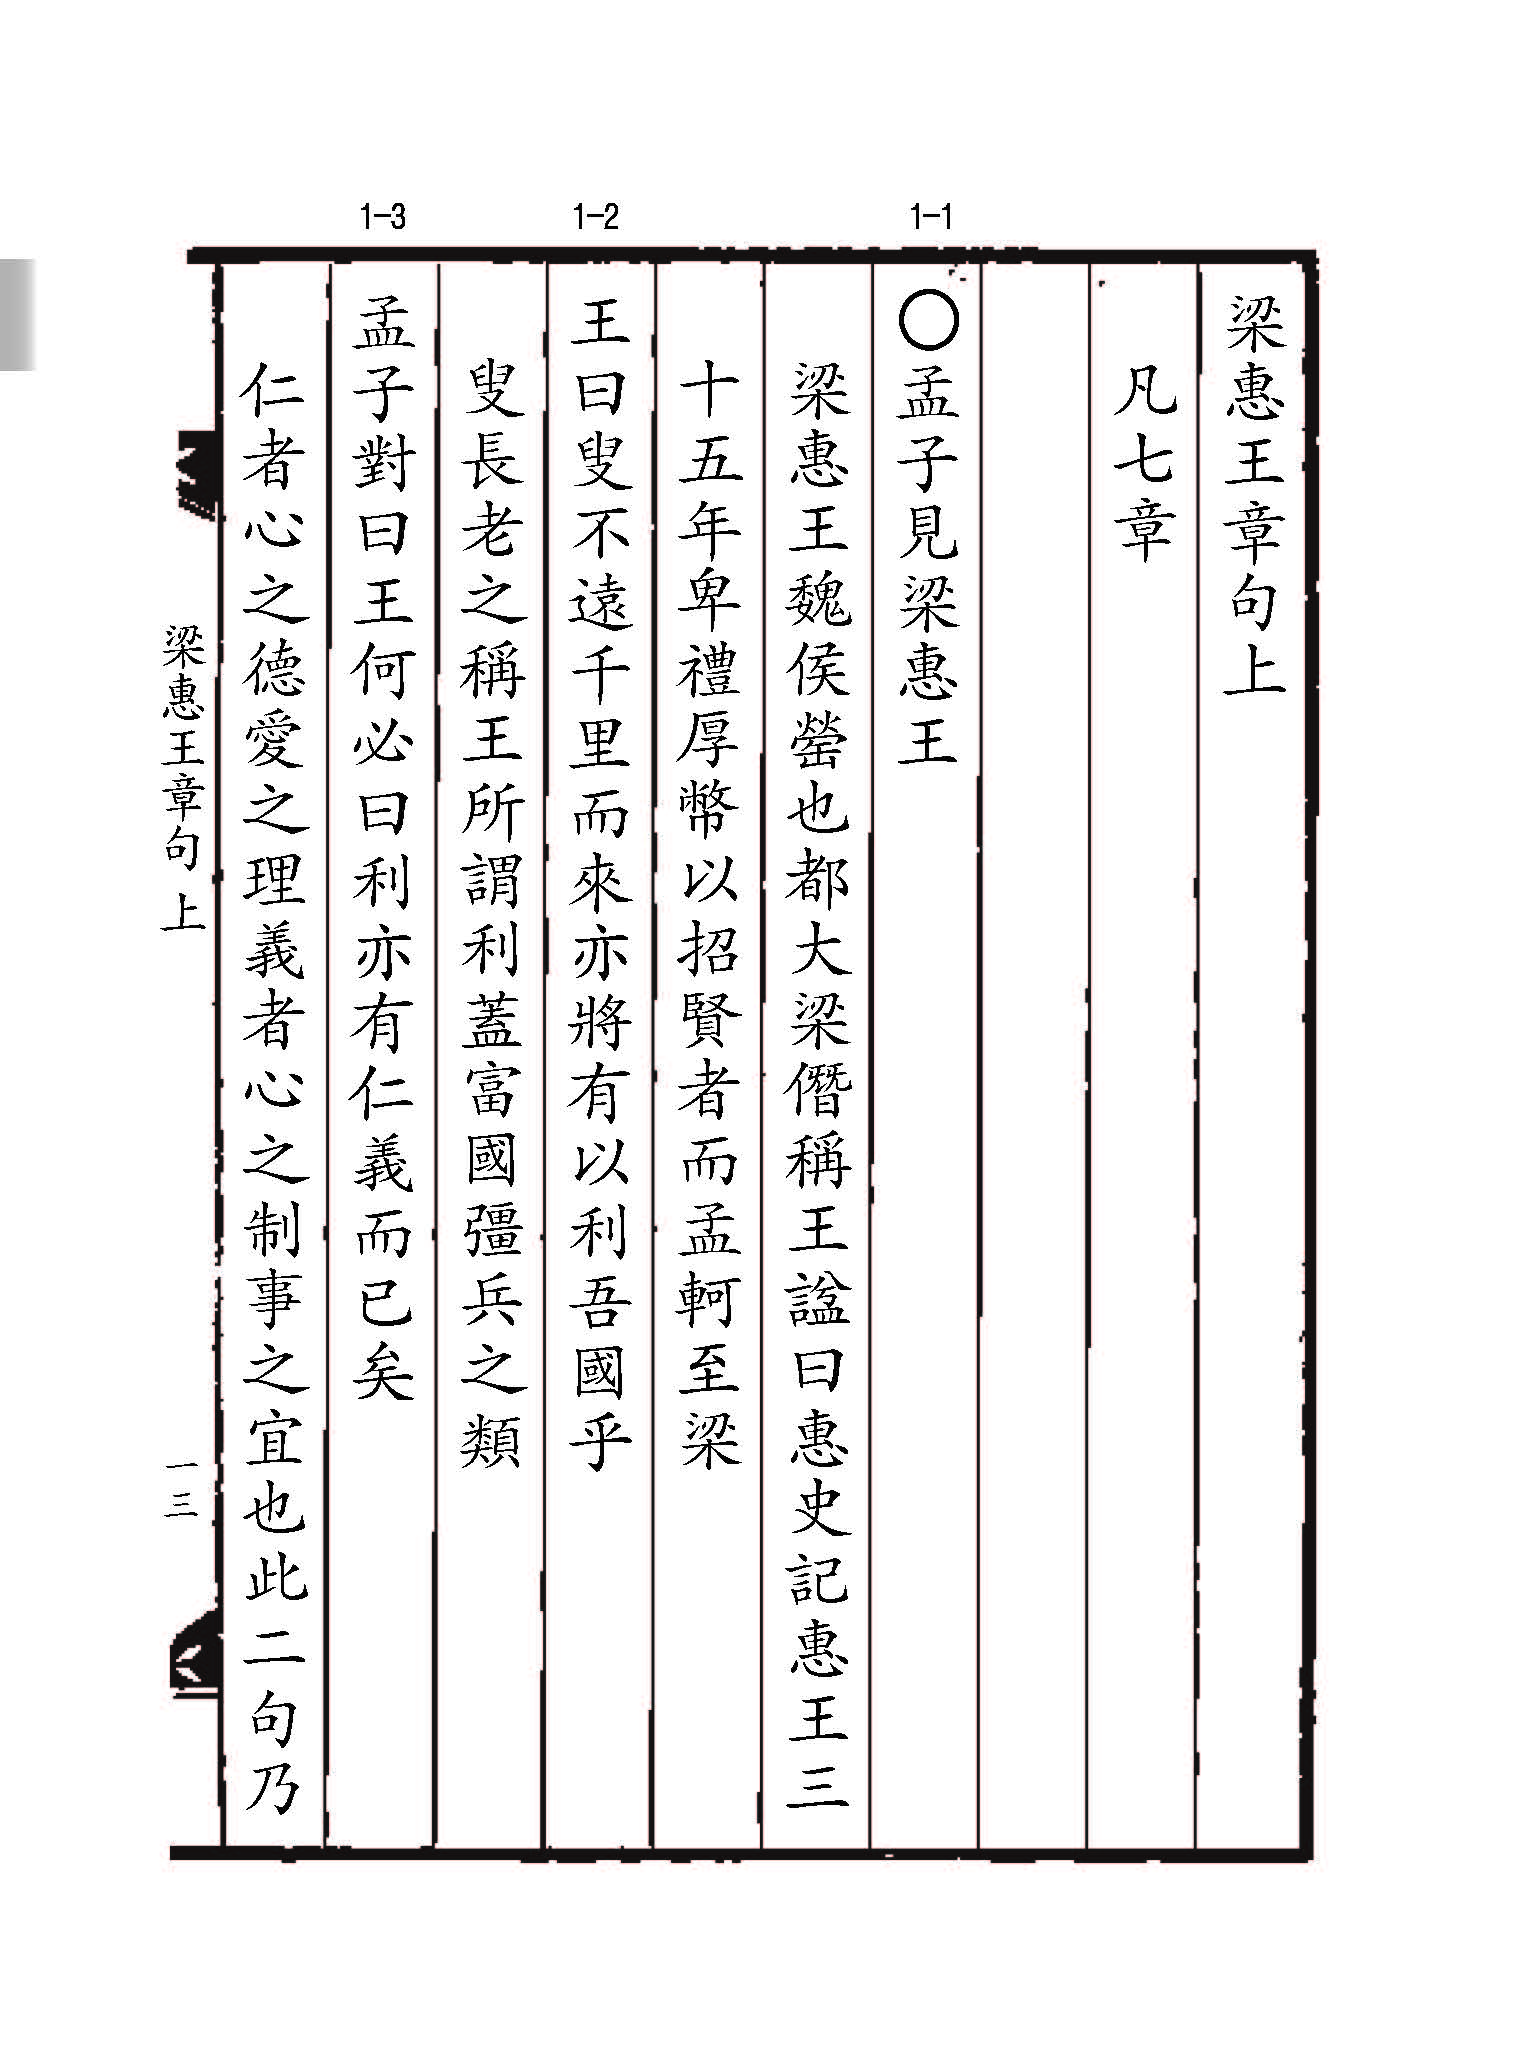 1-1
1-2
1-3
梁惠王章句上
凡七章
○孟子見梁惠王
梁惠王魏侯罃也都大梁僭稱王諡曰惠史記惠王三
十五年卑禮厚幣以招賢者而孟軻至梁
王曰叟不遠千里而來亦將有以利吾國乎
叟長老之稱王所謂利蓋富國彊兵之類
孟子對曰王何必曰利亦有仁義而已矣
仁者心之德愛之理義者心之制事之宜也此二句乃
梁惠王章句上
一三